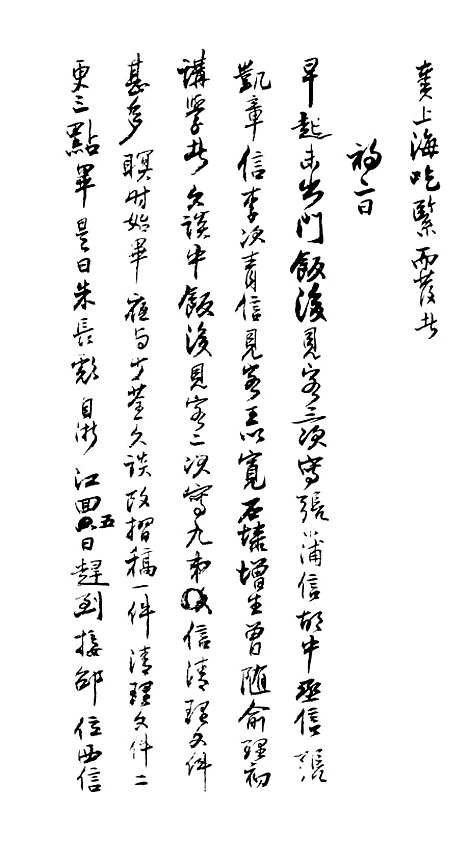 賁上海吃緊而發者
初二日
早起未出門飯後見客三次寫張小浦信胡中丞信張
凱章信李次青信見客王心寬石埭增生曾隨俞理初
講學者久談中飯後見客二次寫九弟信清理文件
甚多瞑時始畢夜与少荃久談改摺稿一件清理文件二
更三點畢是日朱長彪自浙江回五日趕到接邵位西信